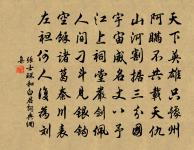 天下英雄只豫州
阿瞞不共戴天仇
山河割據三分國
宇宙威名丈八矛
江上祠堂嚴劍佩
人間刁斗見銀鉤
空餘諸葛秦川表
左袒何人復為劉
士環
詞典網
集